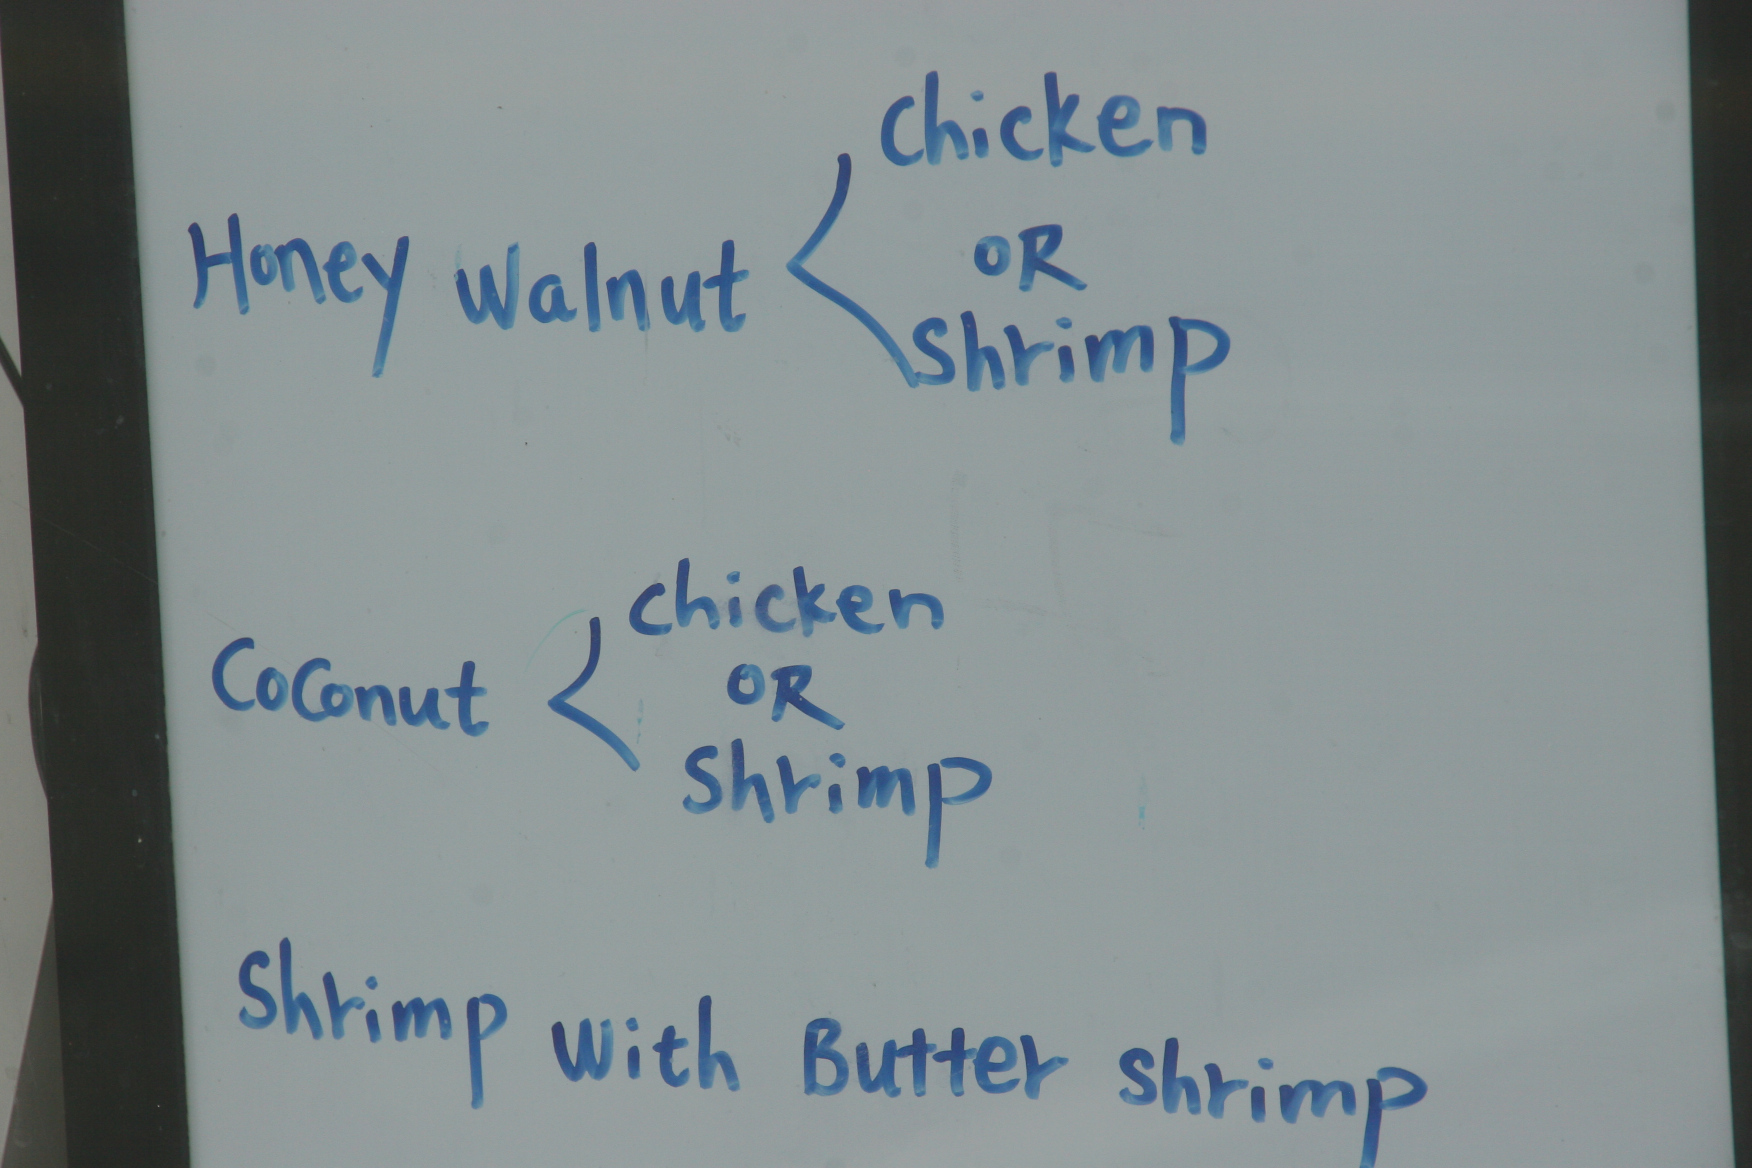 chicken
Honey walnut OR
shrimp
chicken
Coconut OR
shrimp
Shrimp with Butter shrimp